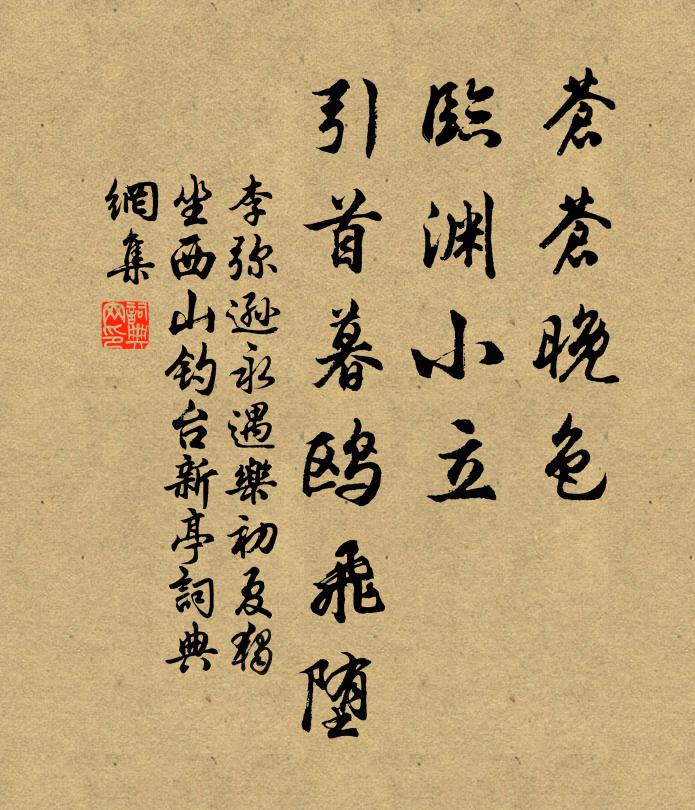 蒼蒼晚色
臨渊小立
引首暮鸥飛堕
李弥遜永遇樂初夏獨
坐西山钓台新亭詞典
網集
詞典網印